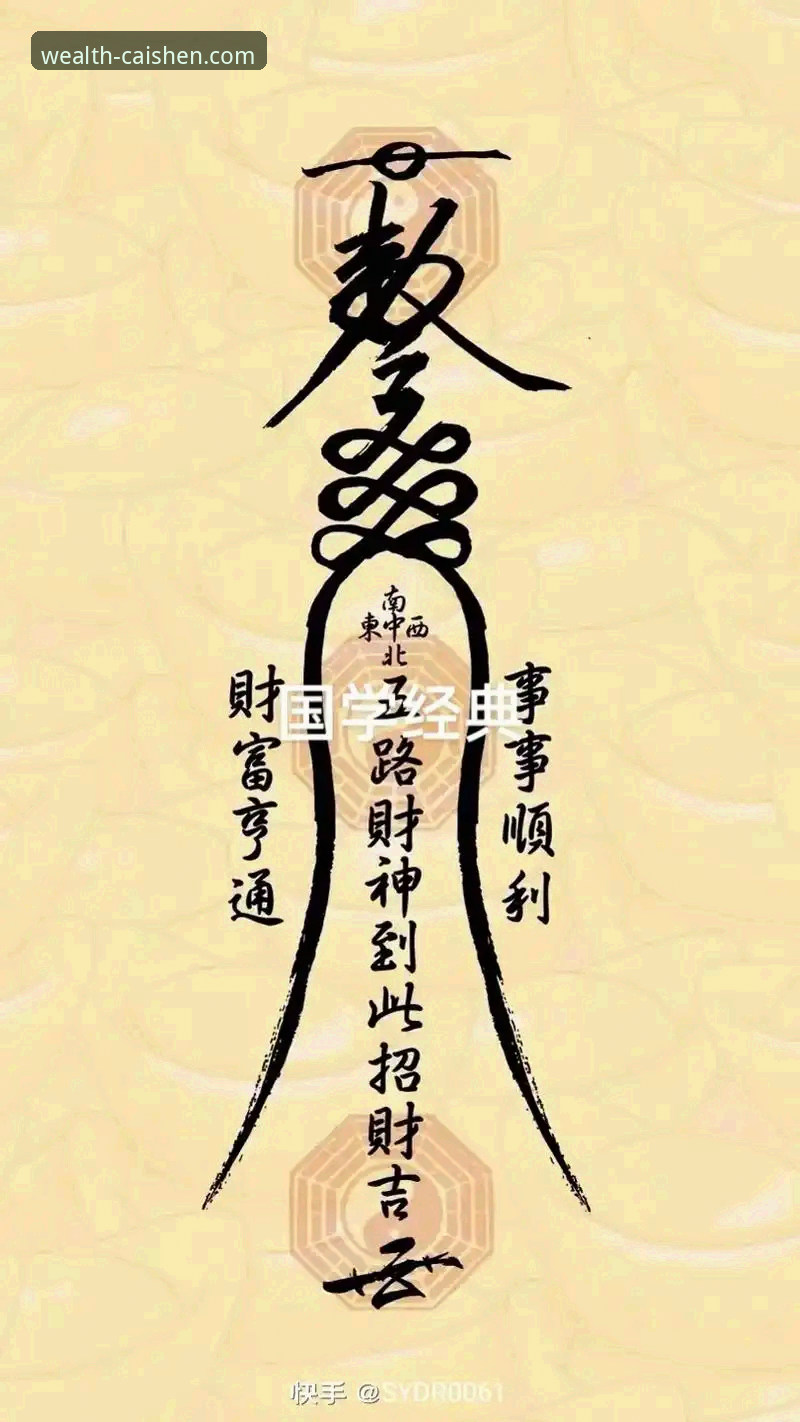 wealth-caishen.com
敕令
南
東中西
北
五路財神到此招財吉
財富亨通
事事順利
国学经典
快手 @SYDR0061